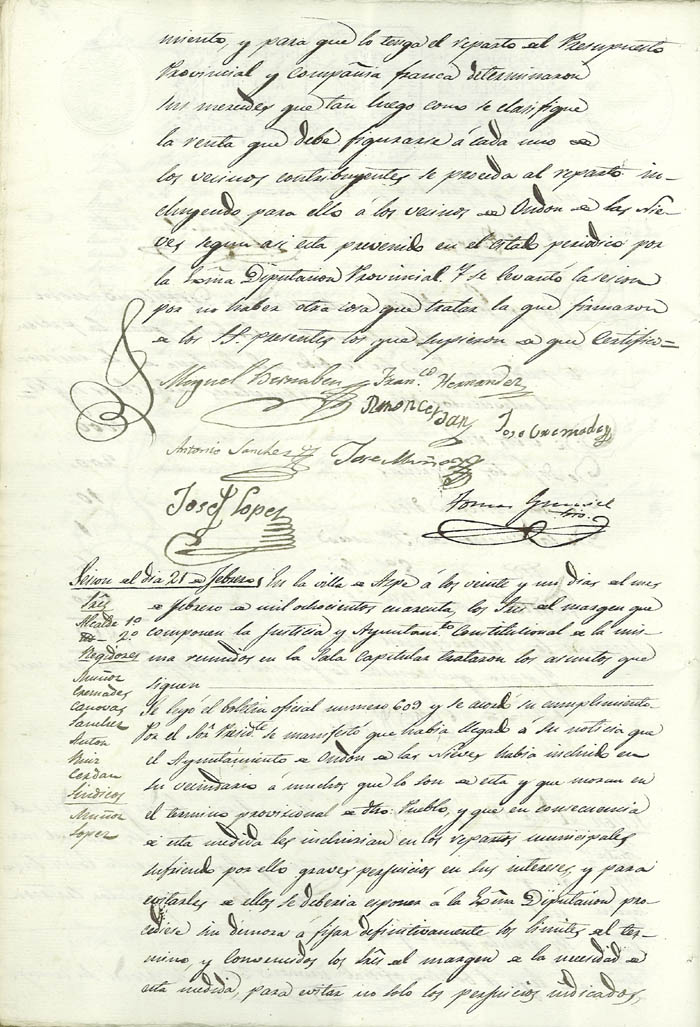 miento, y para que lo tenga el reparto del Presupuesto
Provincial y compañia franca determinaron
sus mercedes que tan luego como se clasifique
la renta que debe figurarse á cada uno de
los vecinos contribuyentes se proceda al reparto in-
cluyendo para ello á los vecinos de Ondon de las Nie-
ves segun asi esta prevenido en el estado periodico por
la Exma Diputacion Provincial. Y se levantó la sesion
por no haber otra cosa que tratar la que firmaron
de los SS. presentes los que supieron de que Certifico=
Miguel Bernabeu Fran.co Hernandez
Jose Cremades
Antonio Sanchez Jose Muñoz
Josef Lopez
Tomas
Srio.
Sesion del dia 21 de febrero En la villa de Aspe á los veinte y un dias del mes
Sres de febrero de mil ochocientos cuarenta, los Sres del margen que
Alcalde 1º
2º componen la Justicia y Ayuntam.to Constitucional de la mis-
Regidores ma reunidos en la Sala Capitular trataron los asuntos que
Muñoz siguen
Cremades Se leyó el boletin oficial numero 609 y se acordó su cumplimiento.
Canovas
Sanchez Por el Sor. Presid.te se manifestó que habia llegado á su noticia que
Anton el Ayuntamiento de Ondon de las Nieves habia incluido en
Ruiz su vecindario á muchos que lo son de esta y que moran en
Cerdan el termino provisional de dho. Pueblo, y que en consecuencia
Sindicos
Muñoz de esta medida les incluirian en los repartos municipales
Lopez sufriendo por ello graves perjuicios en sus intereses, y para
evitarles de ellos se deberia esponer á la Exma Diputacion pro-
cediese sin demora á fijar definitivamente los limites del ter-
mino, y convenidos los Sres del margen de la necesidad de
esta medida, para evitar no solo los perjuicios indicados,